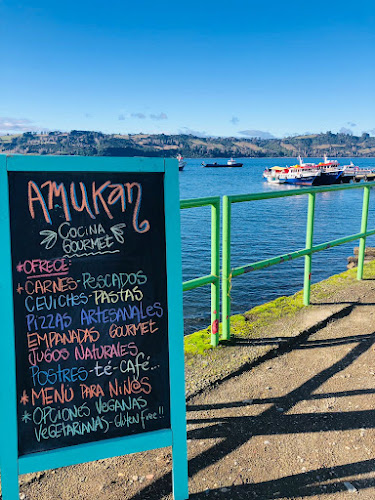 AMUKAN
COCINA
GOURMET
*OFRECE
*CARNES-PESCADOS
CEVICHES-PASTAS
PIZZAS ARTESANALES
EMPANADAS GOURMET
JUGOS NATURALES
POSTRES-TÉ-CAFÉ...
*MENÚ PARA NIÑ@S
*OPCIONES VEGANAS
VEGETARIANAS-GLUTEN FREE!!